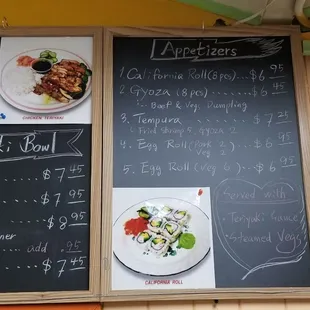 CHICKEN TERIYAKI
i Bowl
$7 45
$7 95
$8 95
ner
add .95
$7 45
Appetizers
1 California Roll (8 pcs)...$6 95
2 Gyoza (8 pcs).......$6 95
Beef & Veg. Dumpling
3. Tempura.....$7 25
Fried Shrimp 5 gyoza 2
4. Egg Roll (Pork 2 veg 6)...$6 95
5. Egg Roll (Veg 6)...$6 95
Served with
• Teriyaki Sauce
• Steamed Vegs
CALIFORNIA ROLL